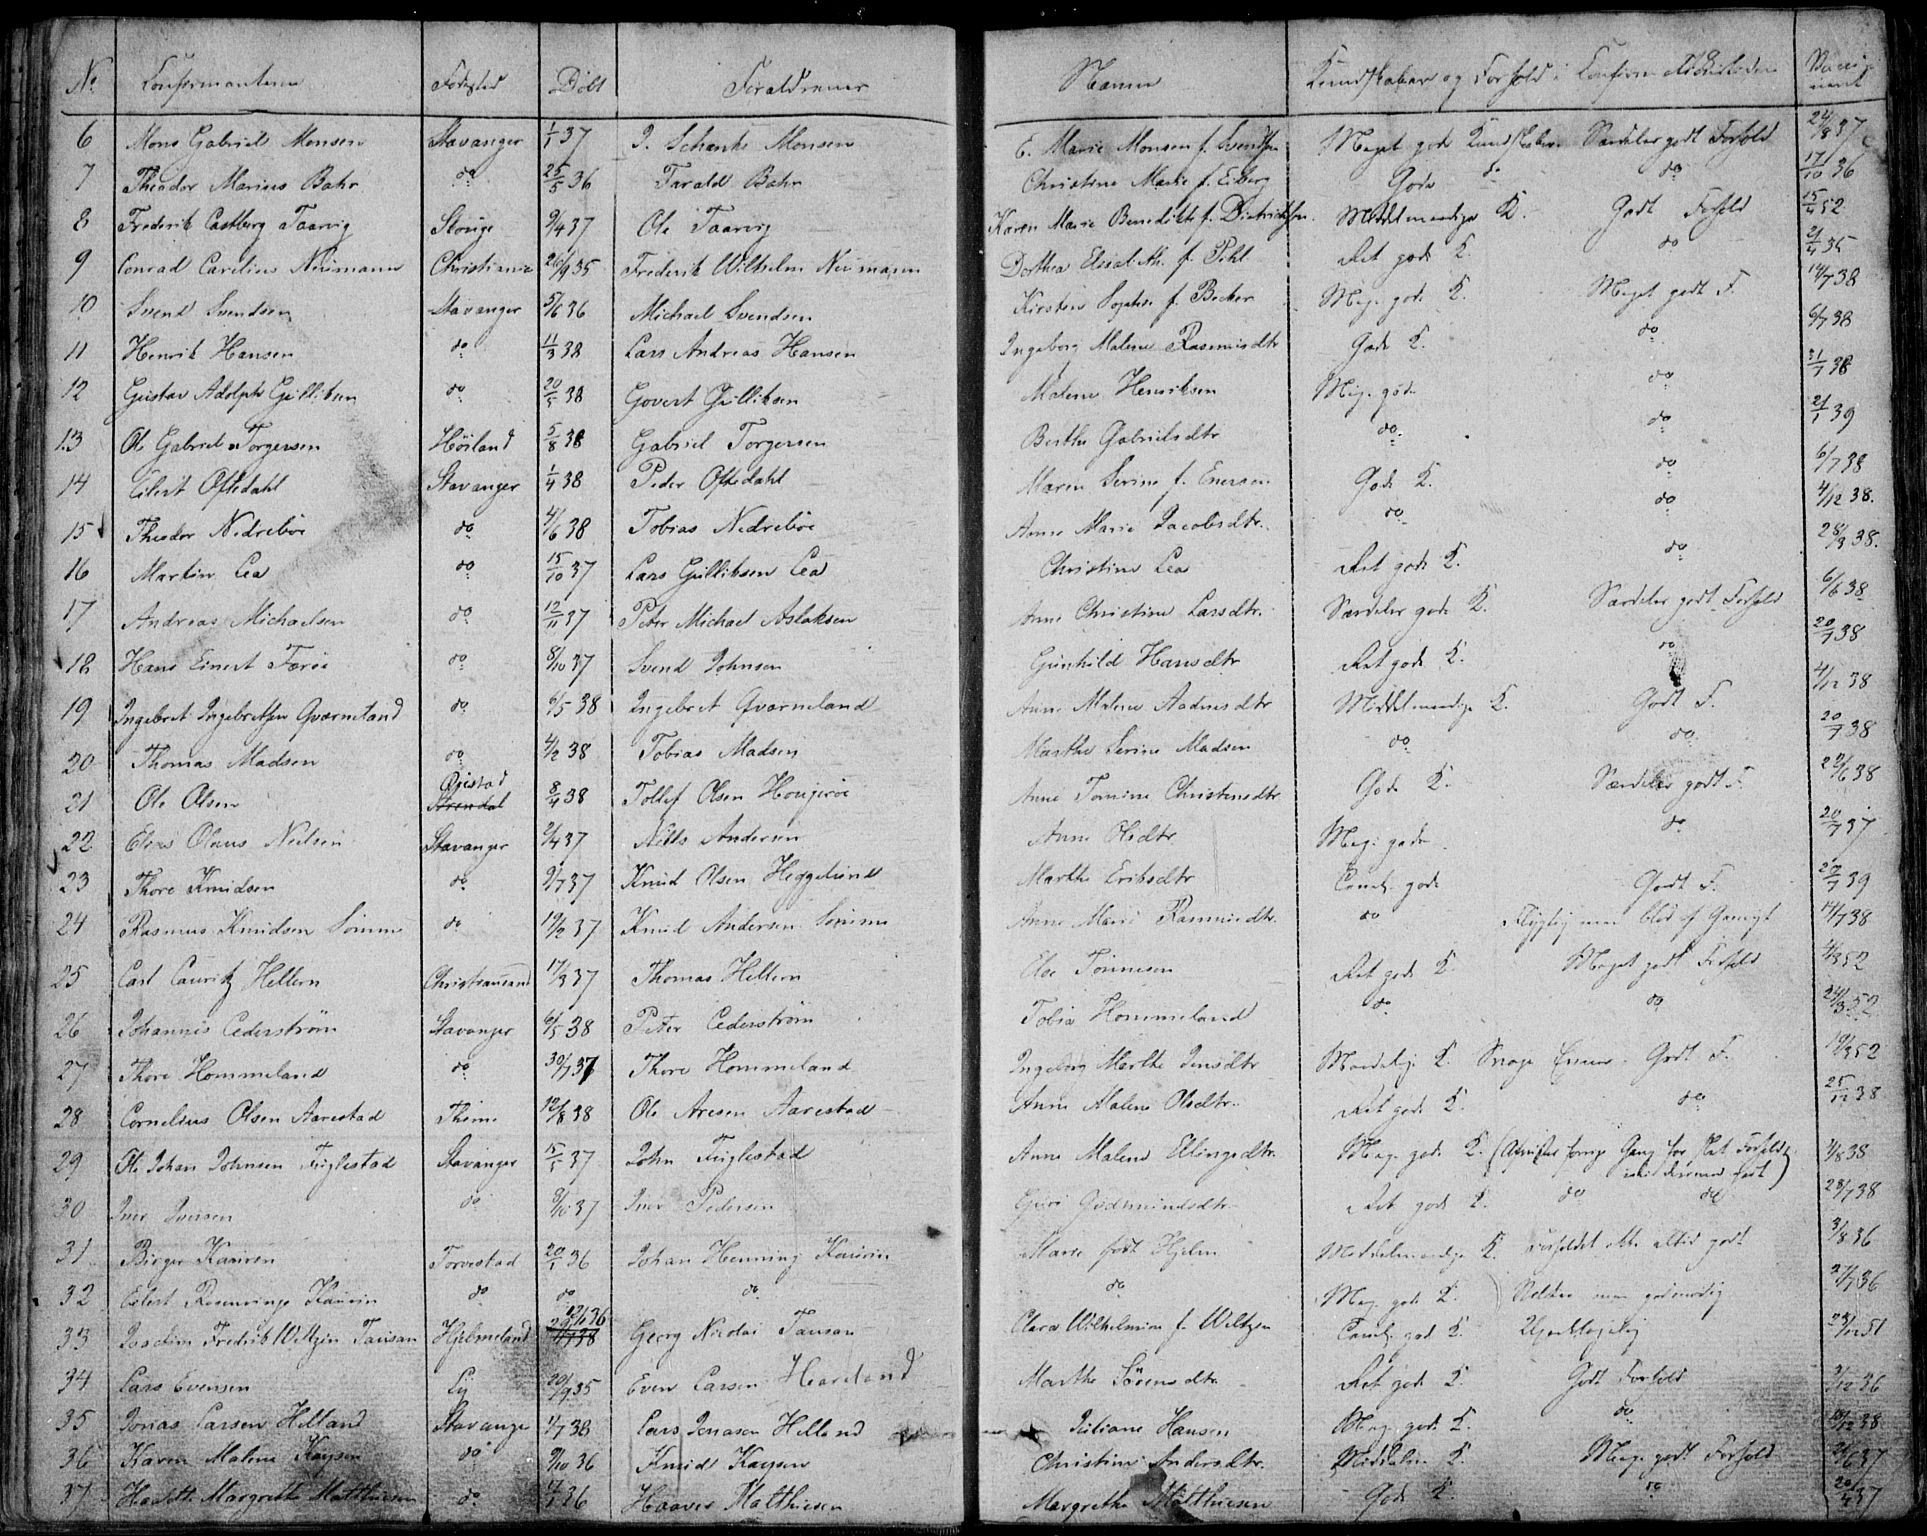 No Konfirmanterne Fødested Døbt Forældrenes Navne Kundskaber og Forhold i Konfirm Vacci neret
6 Mons Gabriel Monsen Stavanger 1/1 37 J. Schanke Monsen E. Marie Monsen f. Svendsen Meget gode Kundskaber Særdeles godt Forhold 24/8 37
7 Theodor Marius Bahr do 25/5 36 Tarald Bahr Christine Marie f. Eiberg Gode do do 17/10 36
8 Frederik Castberg Taarvig 9/4 37 Ole Taarvig Karen Marie Benedikte f. Dietrichsen Middelmaadige K. Godt Forhold 15/4 52
9 Conrad Carelius Neumann Christiania 26/9 35 Frederik Wilhelm Neumann Dorthea f. Pihl Ret gode K. do 35
10 Svend Svendsen Stavanger 5/6 36 Michael Svendsen Kirsten Sophie f. Becker Meg. gode K. Meget godt F. 14/7 38
11 Henrik Hansen do 11/3 38 Lars Andreas Hansen Ingeborg Malene Rasmusdtr Gode K. do 6/7 38
12 Gustav Adolph Gulliksen do 20/5 38 Govert Gulliksen Malene Henriksen Meg. gode do 31/7 38
13 Ole Gabriel Torgersen Høiland 5/8 38 Gabriel Torgersen Berthe Gabrielsdtr do do 21/1 39
14 Eilert Oftedahl Stavanger 1/4 38 Peder Oftedahl Maren Serine f. Enersen Gode K. do 6/7 38
15 Theodor Nedrebøe do 4/6 38 Tobias Nedrebøe Anne Marie Jacobsdtr. do do 4/12 38.
16 Martin Lea do 15/10 37 Lars Gulliksen Lea Christine Lea Ret gode K. do 28/3 38.
17 Andreas Michaelsen do 12/11 37 Peter Michael Aslaksen Anne Christine Larsdtr. Særdeles gode K. Særdeles godt Forhold 6/6 38
18 Hans Einert Færøe do 8/10 37 Svend Johnsen Gunhild Hansdtr Ret gode K. do 20/7 38
19 Ingebret Ingebretsen Qværneland do 6/5 38 Ingebret Qværneland Anne Malene Aadnesdtr Middelmaadige K. Godt F. 4/12 38
20 Thomas Madsen do 4/2 38 Tobias Madsen Marthe Serine Madsen do do 20/7 38
21 Ole Olsen Ogistad Strendal 8/4 38 Tollef Olsen Anne Tomine Christensdtr Gode K. Særdeles godt F. 22/6 38
22 Elias Olaus Nielsen Stavanger 2/4 37 Niels Andersen Anne Olsdtr Meg. gode do 20/7 37
23 Thore Knudsen do 9/7 37 Knud Olsen Heggelund Marthe Eriksdtr Teml. gode Godt F. 39
24 Rasmus Knudsen Sømme do 19/2 37 Knud Andersen Sømme Anne Marie Rasmusdtr. do Flygtig men blød af Gemyt 14/7 38
25 Carl Lauritz Hellern Christiansand 17/3 37 Thomas Hellern Else Tønnesen Ret gode K. Meget godt Forhold 4/3 52
26 Johannes Cederstrøm Stavanger 6/5 38 Peter Cederstrøm Tobia Hommeland do do 24/3 52
27 Thore Hommeland do 30/7 37 Thore Hommeland Ingeborg Marthe Jensdtr Maadelige K. Svage Evner. Godt F. 19/3 52
28 Cornelius Olsen Aarestad Thime 12/8 38 Ole Aresen Aarestad Anne Malene Olsdtr. Ret gode K. do 25/12 38
29 Ole Johan Johnsen Fuglestad Stavanger 15/5 37 John Fuglestad Anne Malene Ellingsdtr. Meg. gode K. 4/8 38
30 Iver Iversen do 8/10 37 Iver Pedersen Guri Gudmundsdtr Ret gode K. do do 28/7 38
31 Birger Kaurin Torvestad 20/1 36 Johan Henning Kaurin Marie født Hjelm Middelmaadige K. Forholdet ikke altid godt 3/8 36
32 Eilert Rosenvinge Kaurin do do do do Meg. gode K. men godmodig 27/7 36
33 Joachim Fredrik Wiltzin Tausan Hjelmeland 12/6 36 Georg Nicolai Tausan Clara Wilhelmine f. Wiltzen Teml. gode K. Ulykkelig 51
34 Lars Evensen Ly 20/9 35 Even Larsen Haaland Marthe Sørensdtr Ret gode K. Godt Forhold 3/12 36
35 Jonas Larsen Helland Stavanger 1/7 38 Lars Jonasen Helland Juliane Hansen Meg. gode K. do 10/12 38
36 Karen Malene Kaysen do 9/10 36 Knud Kaysen Christine Andersdtr. Middelm. K. Meg. godt Forhold 21/6 37
37 Margrethe Matthiesen do 17/1 36 Haaver Matthiesen Margrethe Matthiesen Gode K. do 20/4 37